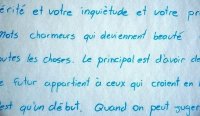 érité et votre inquiétude et votre pr
mots charmeurs qui deviennent beauté
utes les choses. Le principal est d'avoir de
e futur appartient à ceux qui croient en
est qu'un début. Quand on peut juger